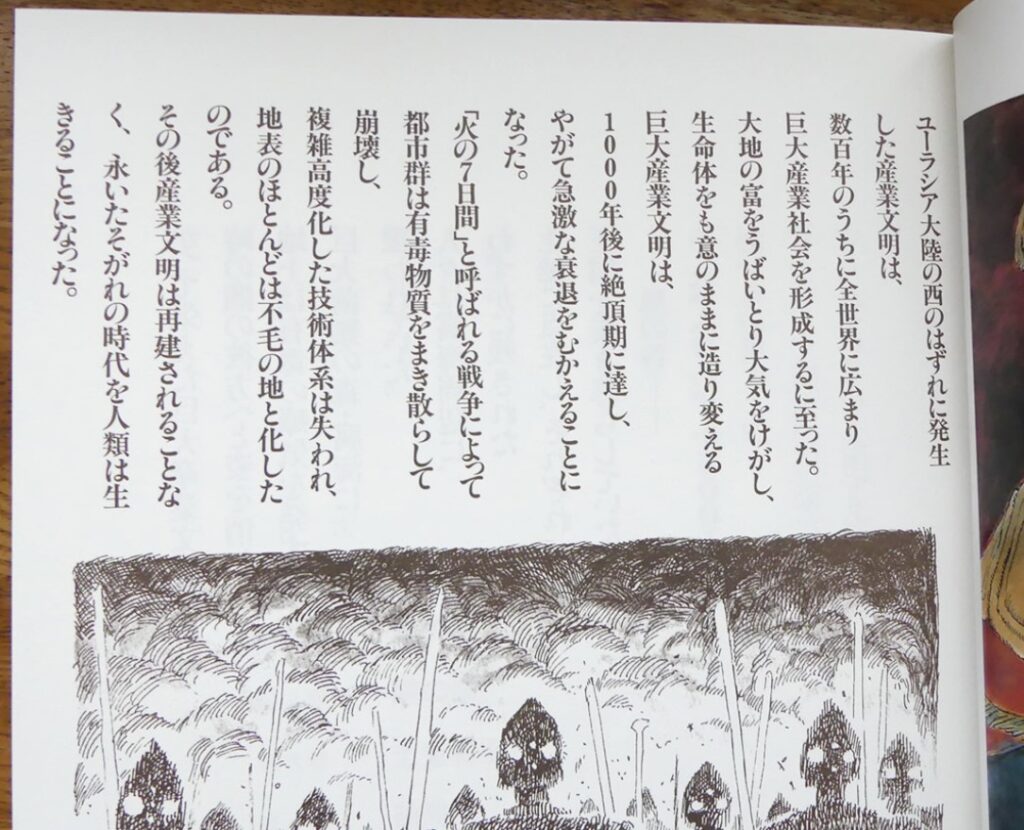 ユーラシア大陸の西のはずれに発生
した産業文明は、
数百年のうちに全世界に広まり
巨大産業社会を形成するに至った。
大地の富をうばいとり大気をけがし、
生命体をも意のままに造り変える
巨大産業文明は、
1000年後に絶頂期に達し、
やがて急激な衰退をむかえることに
なった。
「火の7日間」と呼ばれる戦争によって
都市群は有毒物質をまき散らして
崩壊し、
複雑高度化した技術体系は失われ、
地表のほとんどは不毛の地と化した
のである。
その後産業文明は再建されることな
く、永いたそがれの時代を人類は生
きることになった。